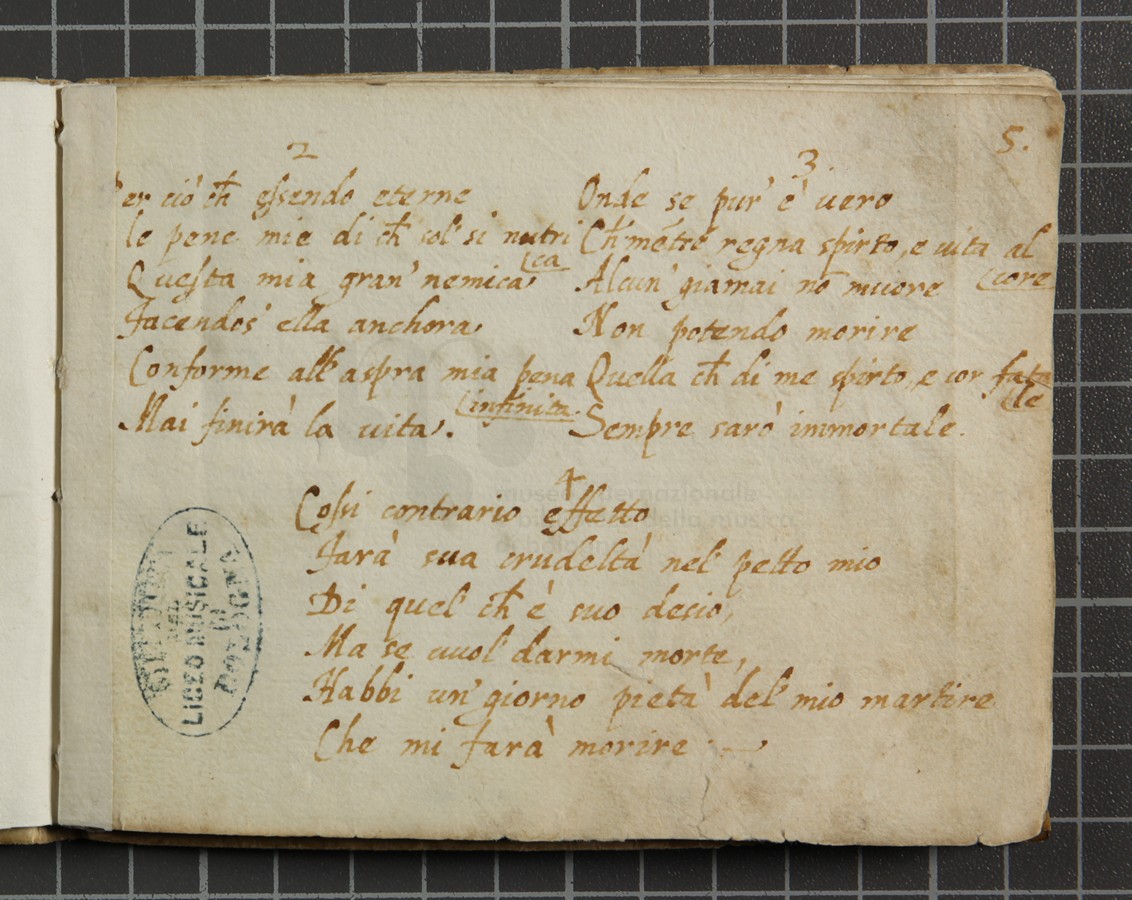 5.
2
Per ciò ch̃ essendo eterne
le pene mie di ch̃ sol' si nutri
(ca
Questa mia gran' nemica
Facendos' ella anchora
Conforme all' aspra mia pena
(infinita
Mai finirà la vita.
3
Onde se pur' è vero
Ch' mẽtre regna spirto, e vita al
(core
Alcun' giamai nõ muore
Non potendo morire
Quella ch̃ di me spirto, e cor fata
(le
Sempre sarò immortale.
4
Cossi contrario effetto
Farà sua crudeltà nel' petto mio
Di quel ch̃ è suo desio,
Ma se vuol' darmi morte,
Habbi un' giorno pietà del' mio martire
Che mi farà morire
LICEO MUSICALE
DI
BOLOGNA
museo internazionale
e biblioteca della musica
di bologna